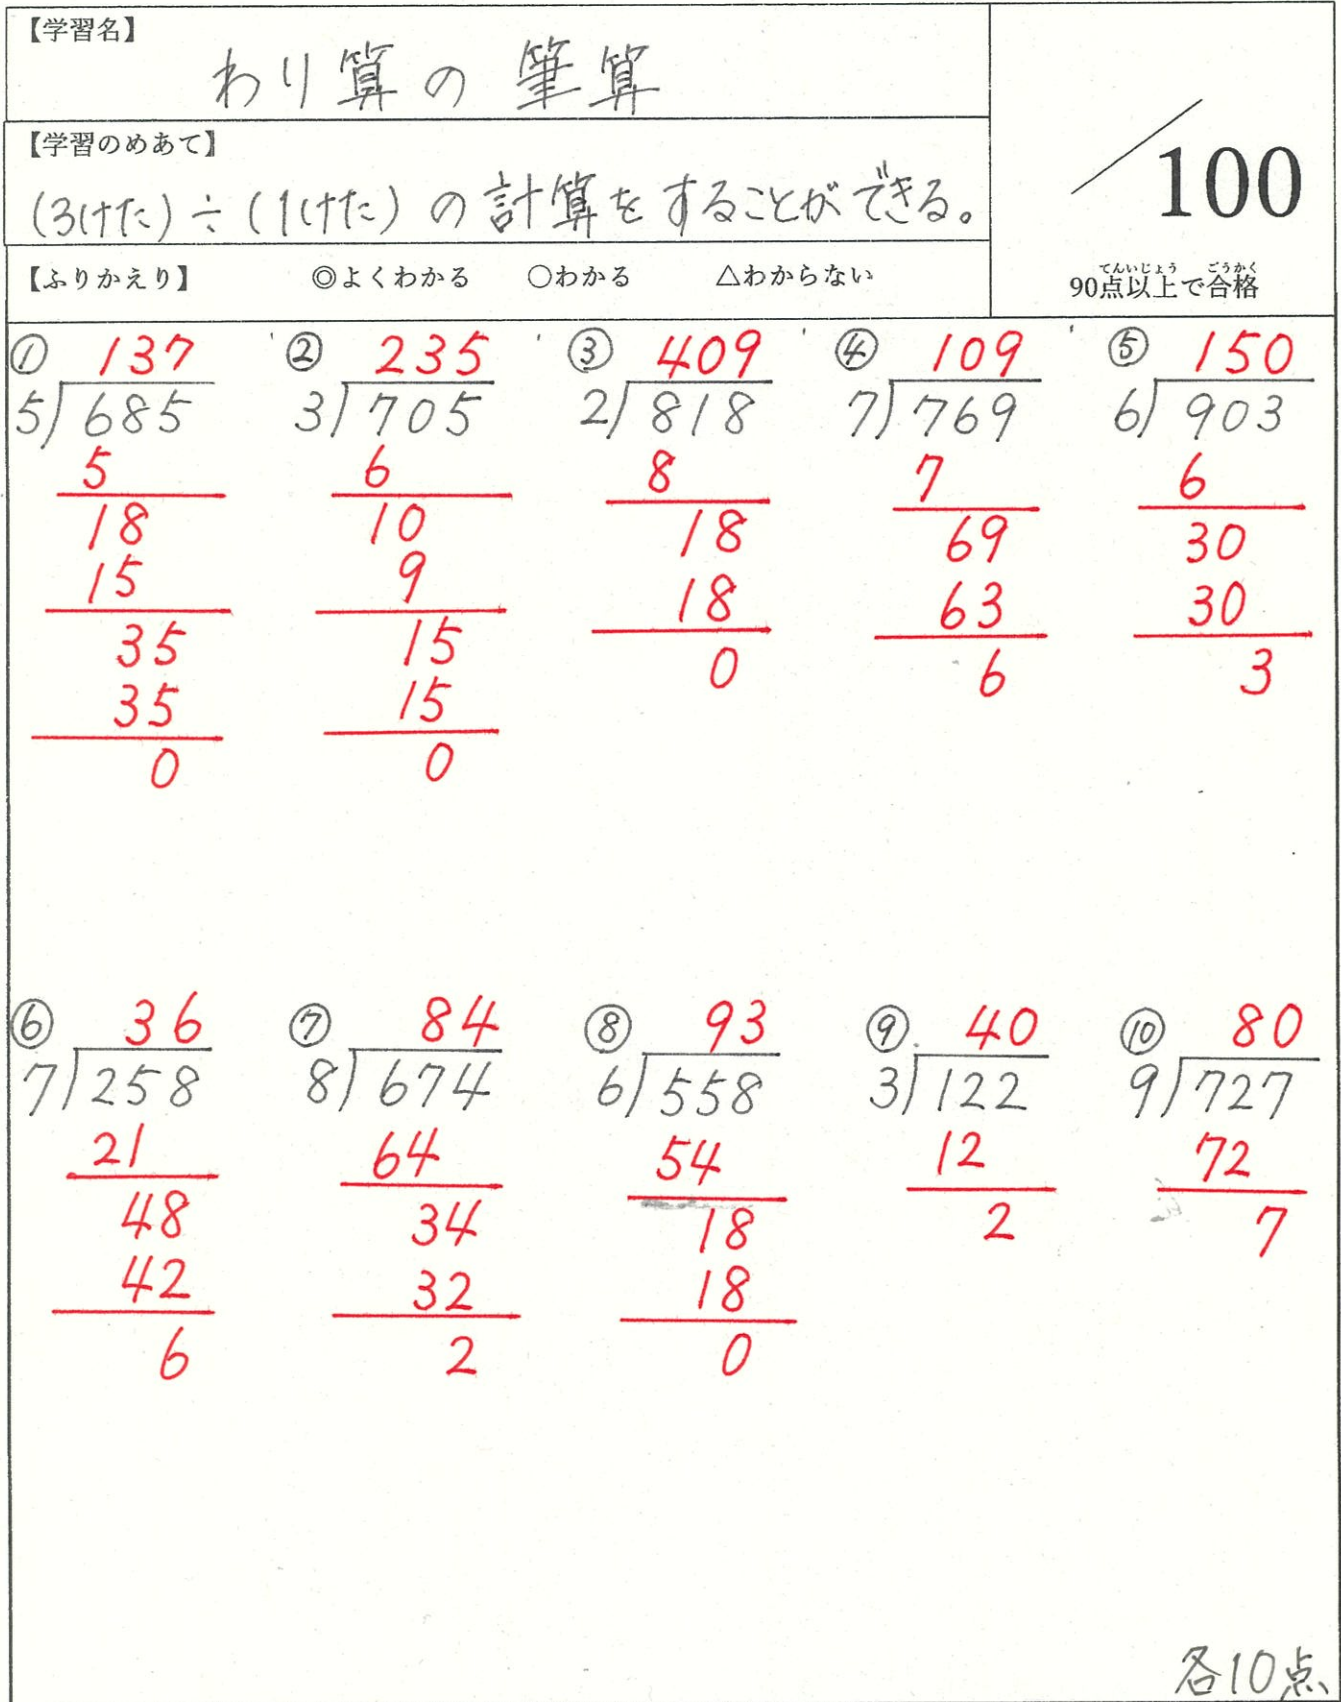 【学習名】
わり算の筆算
【学習のめあて】
(3けた)÷(1けた)の計算をすることができる。
【ふりかえり】 ◎よくわかる ○わかる △わからない
／100
てんいじょう ごうかく
90点以上で合格
① 137
5)685
5
18
15
35
35
0
② 235
3)705
6
10
9
15
15
0
③ 409
2)818
8
18
18
0
④ 109
7)769
7
69
63
6
⑤ 150
6)903
6
30
30
3
⑥ 36
7)258
21
48
42
6
⑦ 84
8)674
64
34
32
2
⑧ 93
6)558
54
18
18
0
⑨ 40
3)122
12
2
⑩ 80
9)727
72
7
各10点